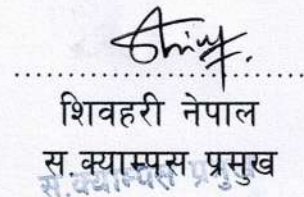 शिवहरी नेपाल
स.क्याम्पस प्रमुख
स.क्याम्पस प्रमुख